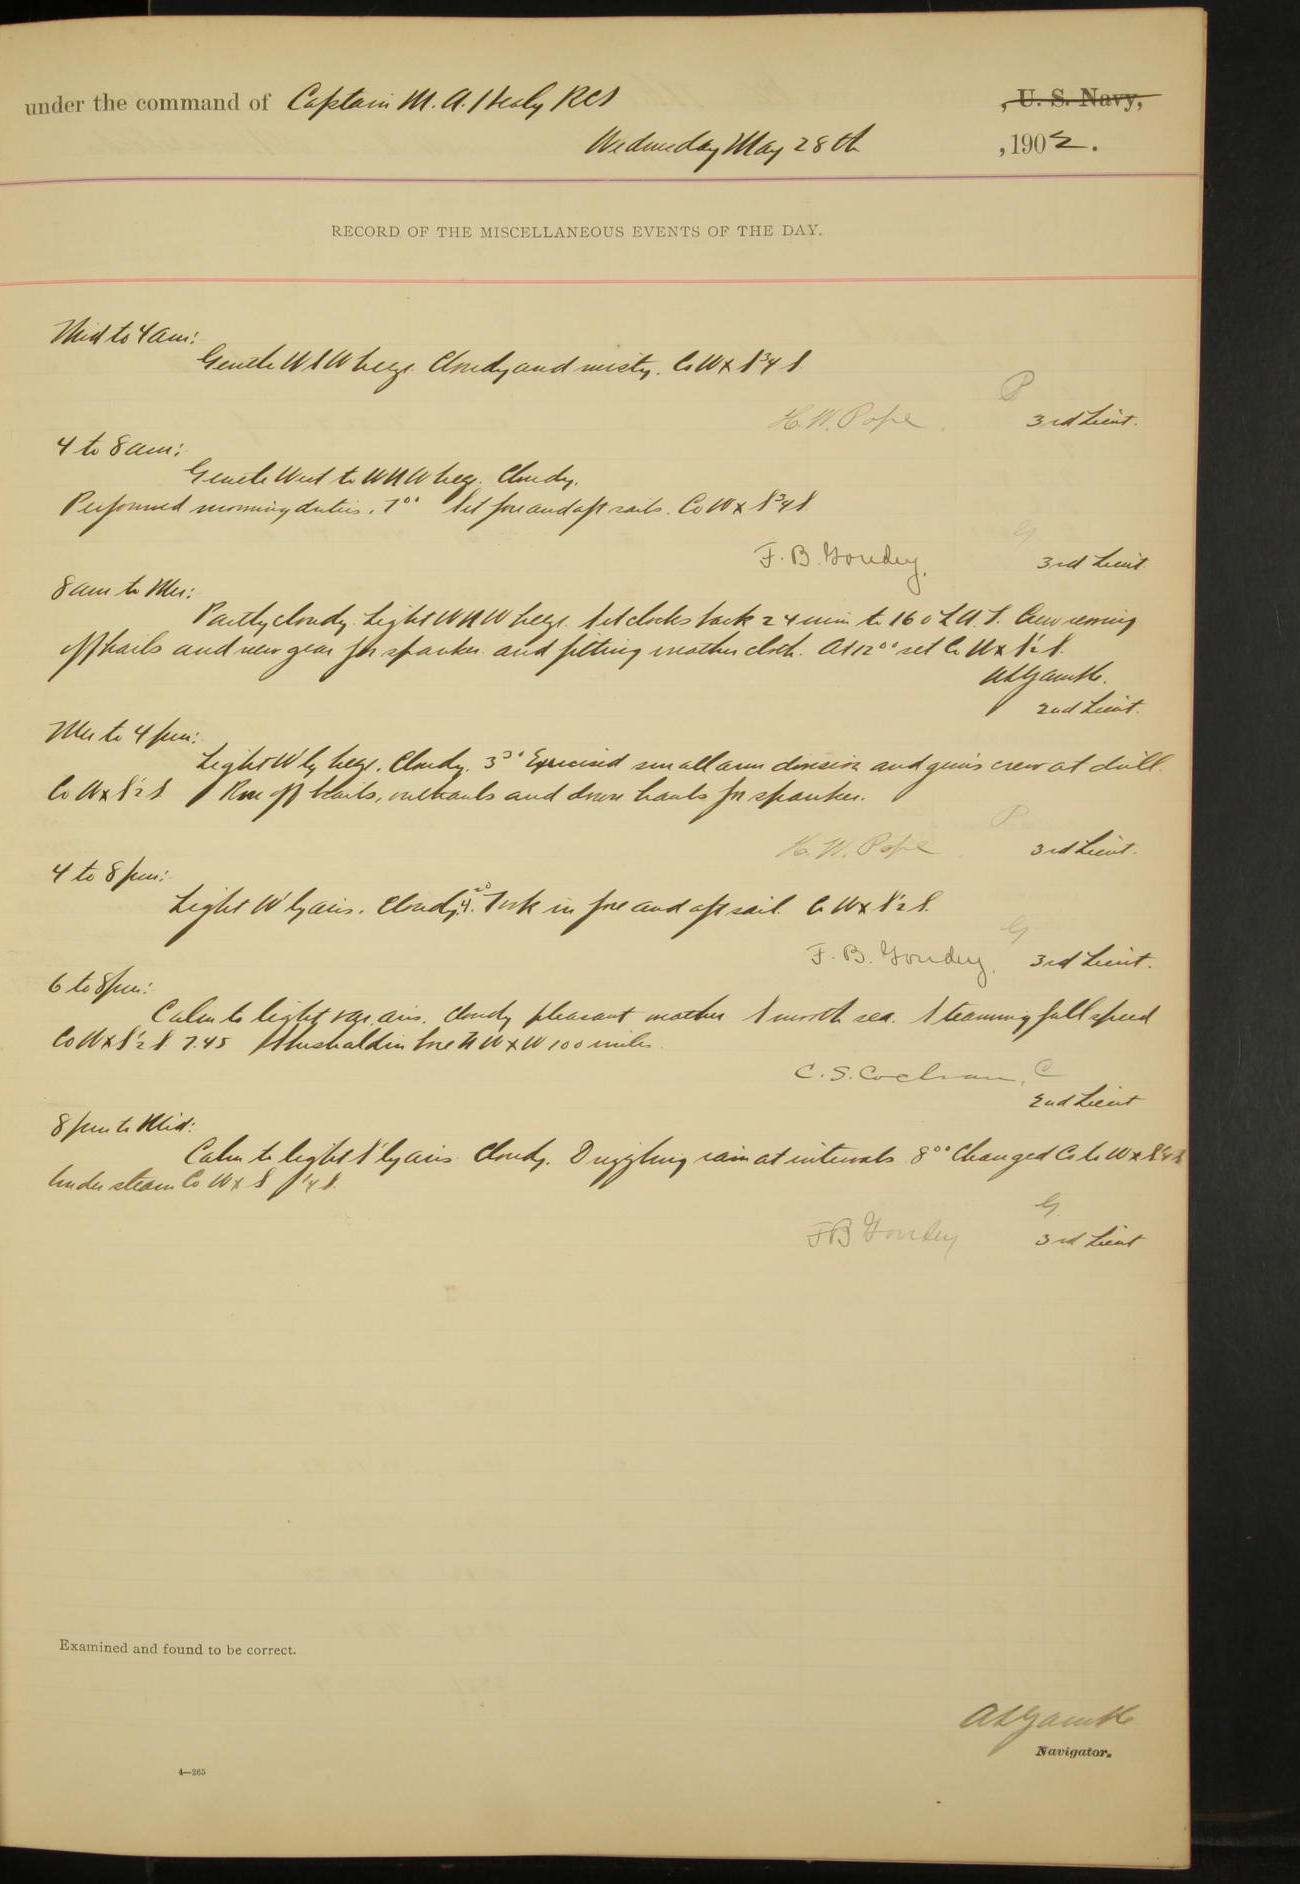 under the command of Captain M. A. Healy RCS , U. S. Navy,
Wednesday May 28th , 1902.
RECORD OF THE MISCELLANEOUS EVENTS OF THE DAY.
Mid to 4 am:
Gentle WSW breeze. Cloudy and misty. Co W x S 3/4 S.
P
H. W. Pope. 3rd Lieut.
4 to 8 am:
Gentle West to WNW breeze. Cloudy.
Performed morning duties. 7 00 Set fore and aft sails. Co W x S 3/4 S
G
F. B. Goudey. 3rd Lieut
8 am to Mer:
Partly cloudy. Light WNW breeze. Set clocks back 24 min to 160 L.A.T. Crew reeving
off brails and new gear for spanker and fitting weather cloth. At 12 00 set Co W x S 1/2 S.
A L Gamble.
2nd Lieut.
Mer to 4 pm:
Light W'ly breeze. Cloudy. 3 30 Exercised small arm division and guns crew at drill.
Co W x S 1/2 S Rove off brails, outhauls and down hauls for spanker.
P
H. W. Pope. 3rd Lieut.
4 to 8 pm:
Light W'ly airs. Cloudy. 4 20 Took in fore and aft sail. Co W x S 1/2 S.
G
F. B. Goudey. 3rd Lieut.
6 to 8 pm:
Calm to light var. airs. Cloudy pleasant weather Smooth sea. Steaming full speed
Co W x S 1/2 S 7.45 bore N W x W 100 miles.
C. S. Cochran, C
2nd Lieut
8 pm to Mid:
Calm to light S'ly airs. Cloudy. Drizzling rain at intervals 8 00 Changed Co to W x S 1/4 S
Under steam Co W x S 1/4 S.
G.
F B Goudey 3rd Lieut
Examined and found to be correct.
A L Gamble
Navigator.
4—265